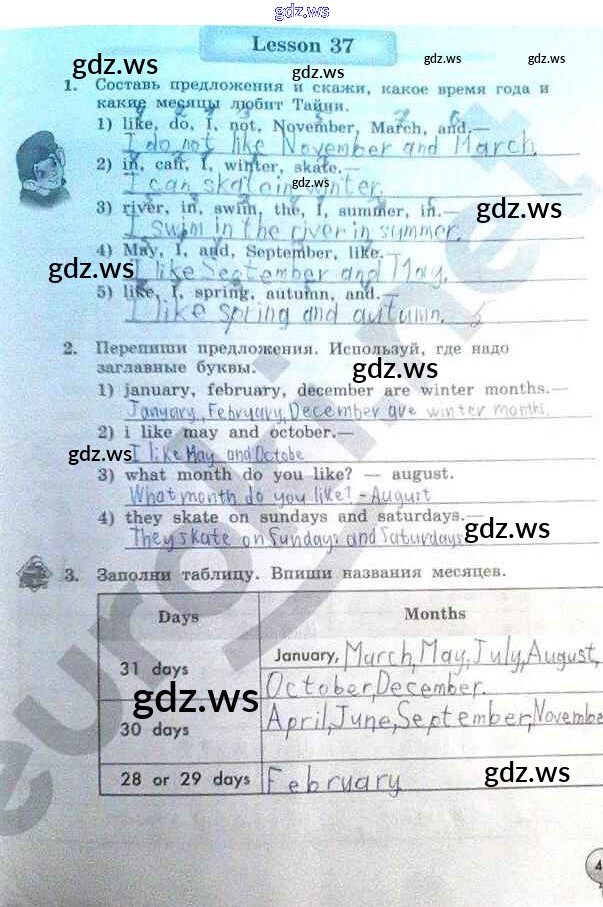 gdz.ws
Lesson 37
gdz.ws
gdz.ws
gdz.ws
gdz.ws
1. Составь предложения и скажи, какое время года и
какие месяцы любит Тайни.
1) like, do, I, not, November, March, and.—
I do not like November and March.
2) in, can, I, winter, skate.—
I can skate in winter.
3) river, in, swim, the, I, summer, in.—
gdz.ws
I swim in the river in summer.
4) May, I, and, September, like.
gdz.ws
I like September and May.
5) like, I, spring, autumn, and.
I like spring and autumn.
2. Перепиши предложения. Используй, где надо
заглавные буквы.
gdz.ws
1) january, february, december are winter months.—
January, February, December are winter months.
2) i like may and october.—
gdz.ws
I like May and Octobe
3) what month do you like? — august.
What month do you like? - August
4) they skate on sundays and saturdays.—
gdz.ws
They skate on Sundays and Saturdays
3. Заполни таблицу. Впиши названия месяцев.
Days Months
31 days January, March, May, July, August,
October, December.
gdz.ws
30 days April, June, September, Novembe
gdz.ws
28 or 29 days February
4
euroki.net